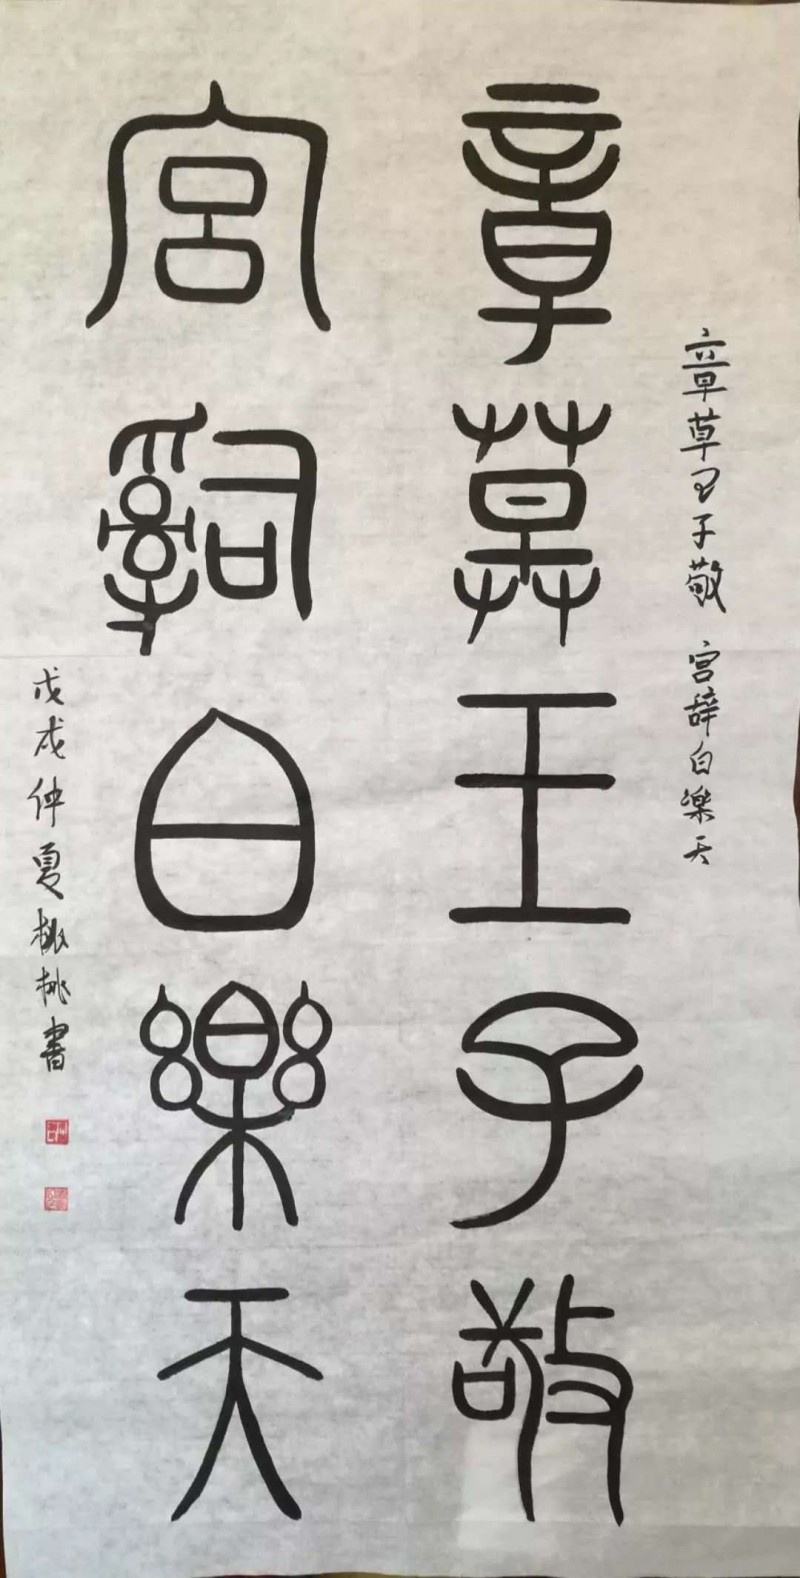 章草王子敬 宮辭白樂天
章草王子敬
宮辭白樂天
戊戌仲夏桃桃書